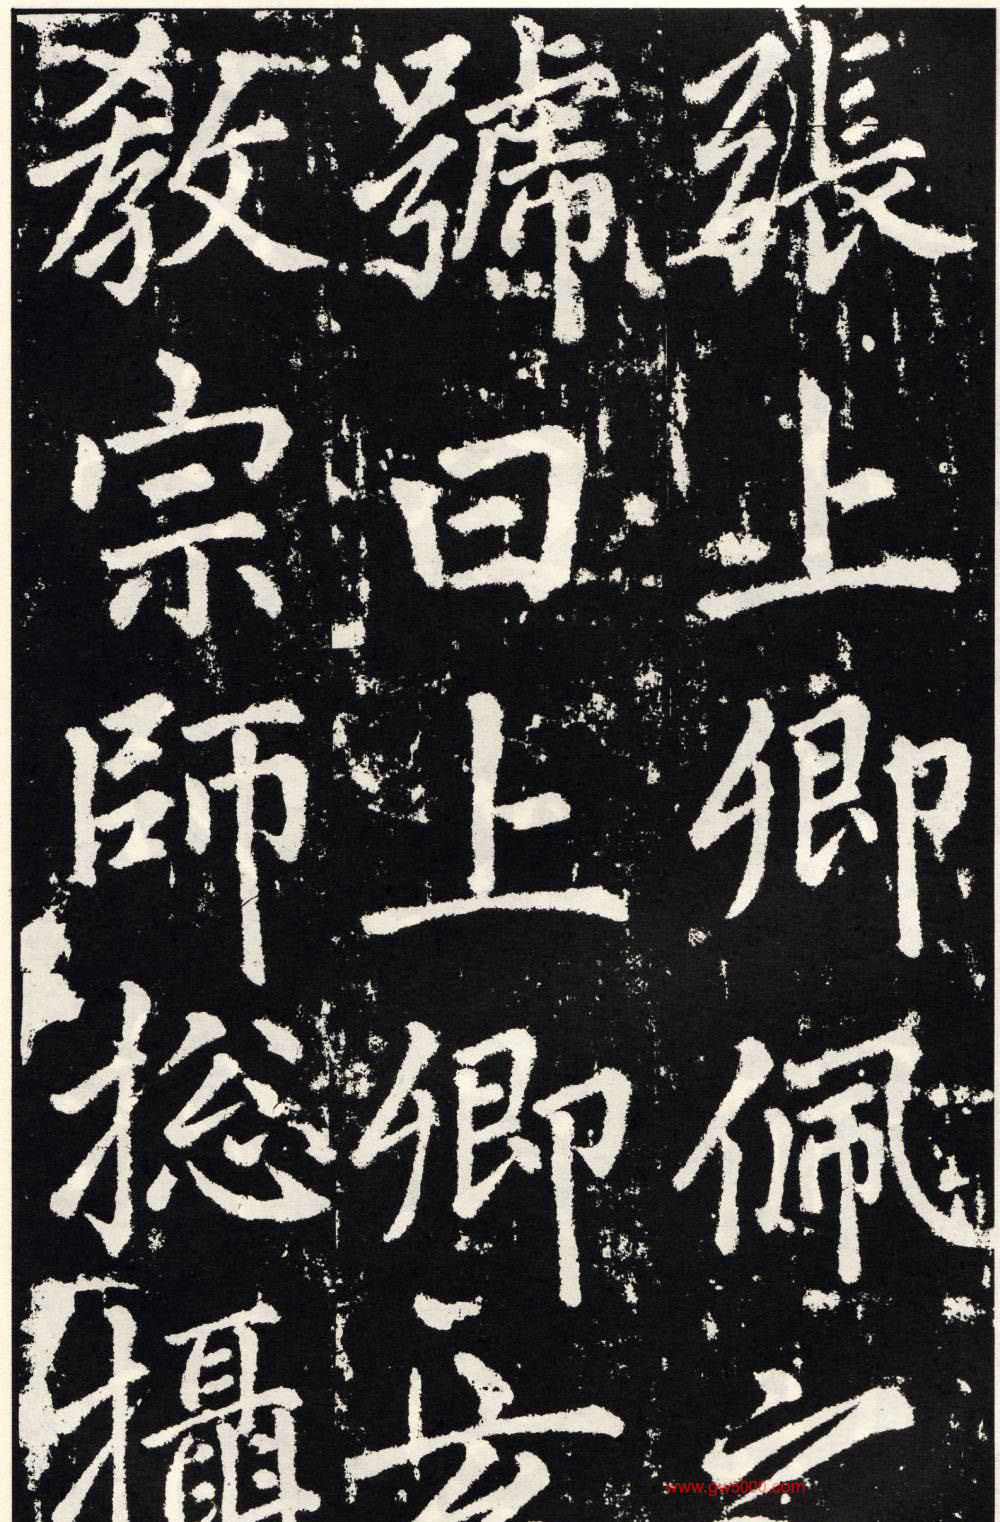 張上卿佩之
號曰上卿玄
教宗師捴攝
www.gw5000.com